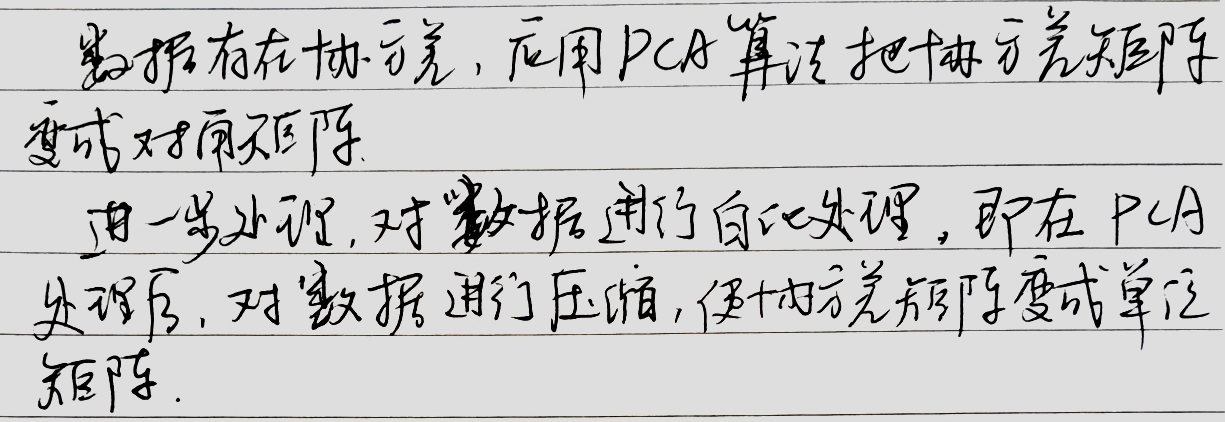 数据存在协方差，应用PCA算法把协方差矩阵
变成对角矩阵.
进一步处理，对数据进行白化处理，即在PCA
处理后，对数据进行压缩，使协方差矩阵变成单位
矩阵.